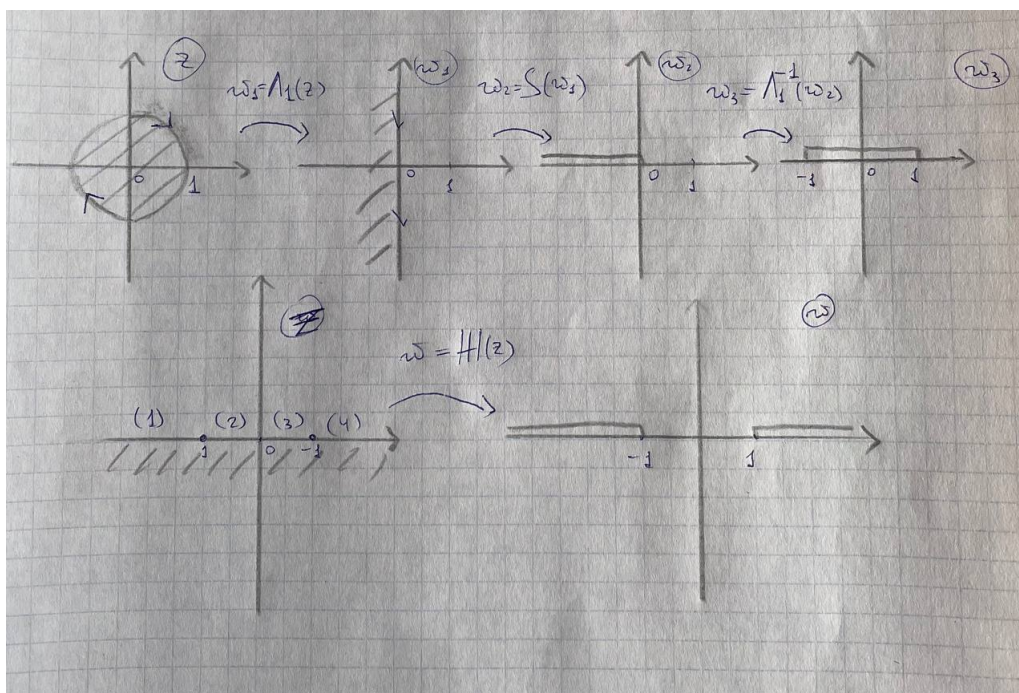 z w₁ = Λ₁(z) w₁ w₂ = S(w₁) w₂ w₃ = Λ₁⁻¹(w₂) w₃
0 1 0 1 0 1 -1 0 1
w = Ж(z) w
(1) (2) (3) (4)
1 0 -1 -1 1